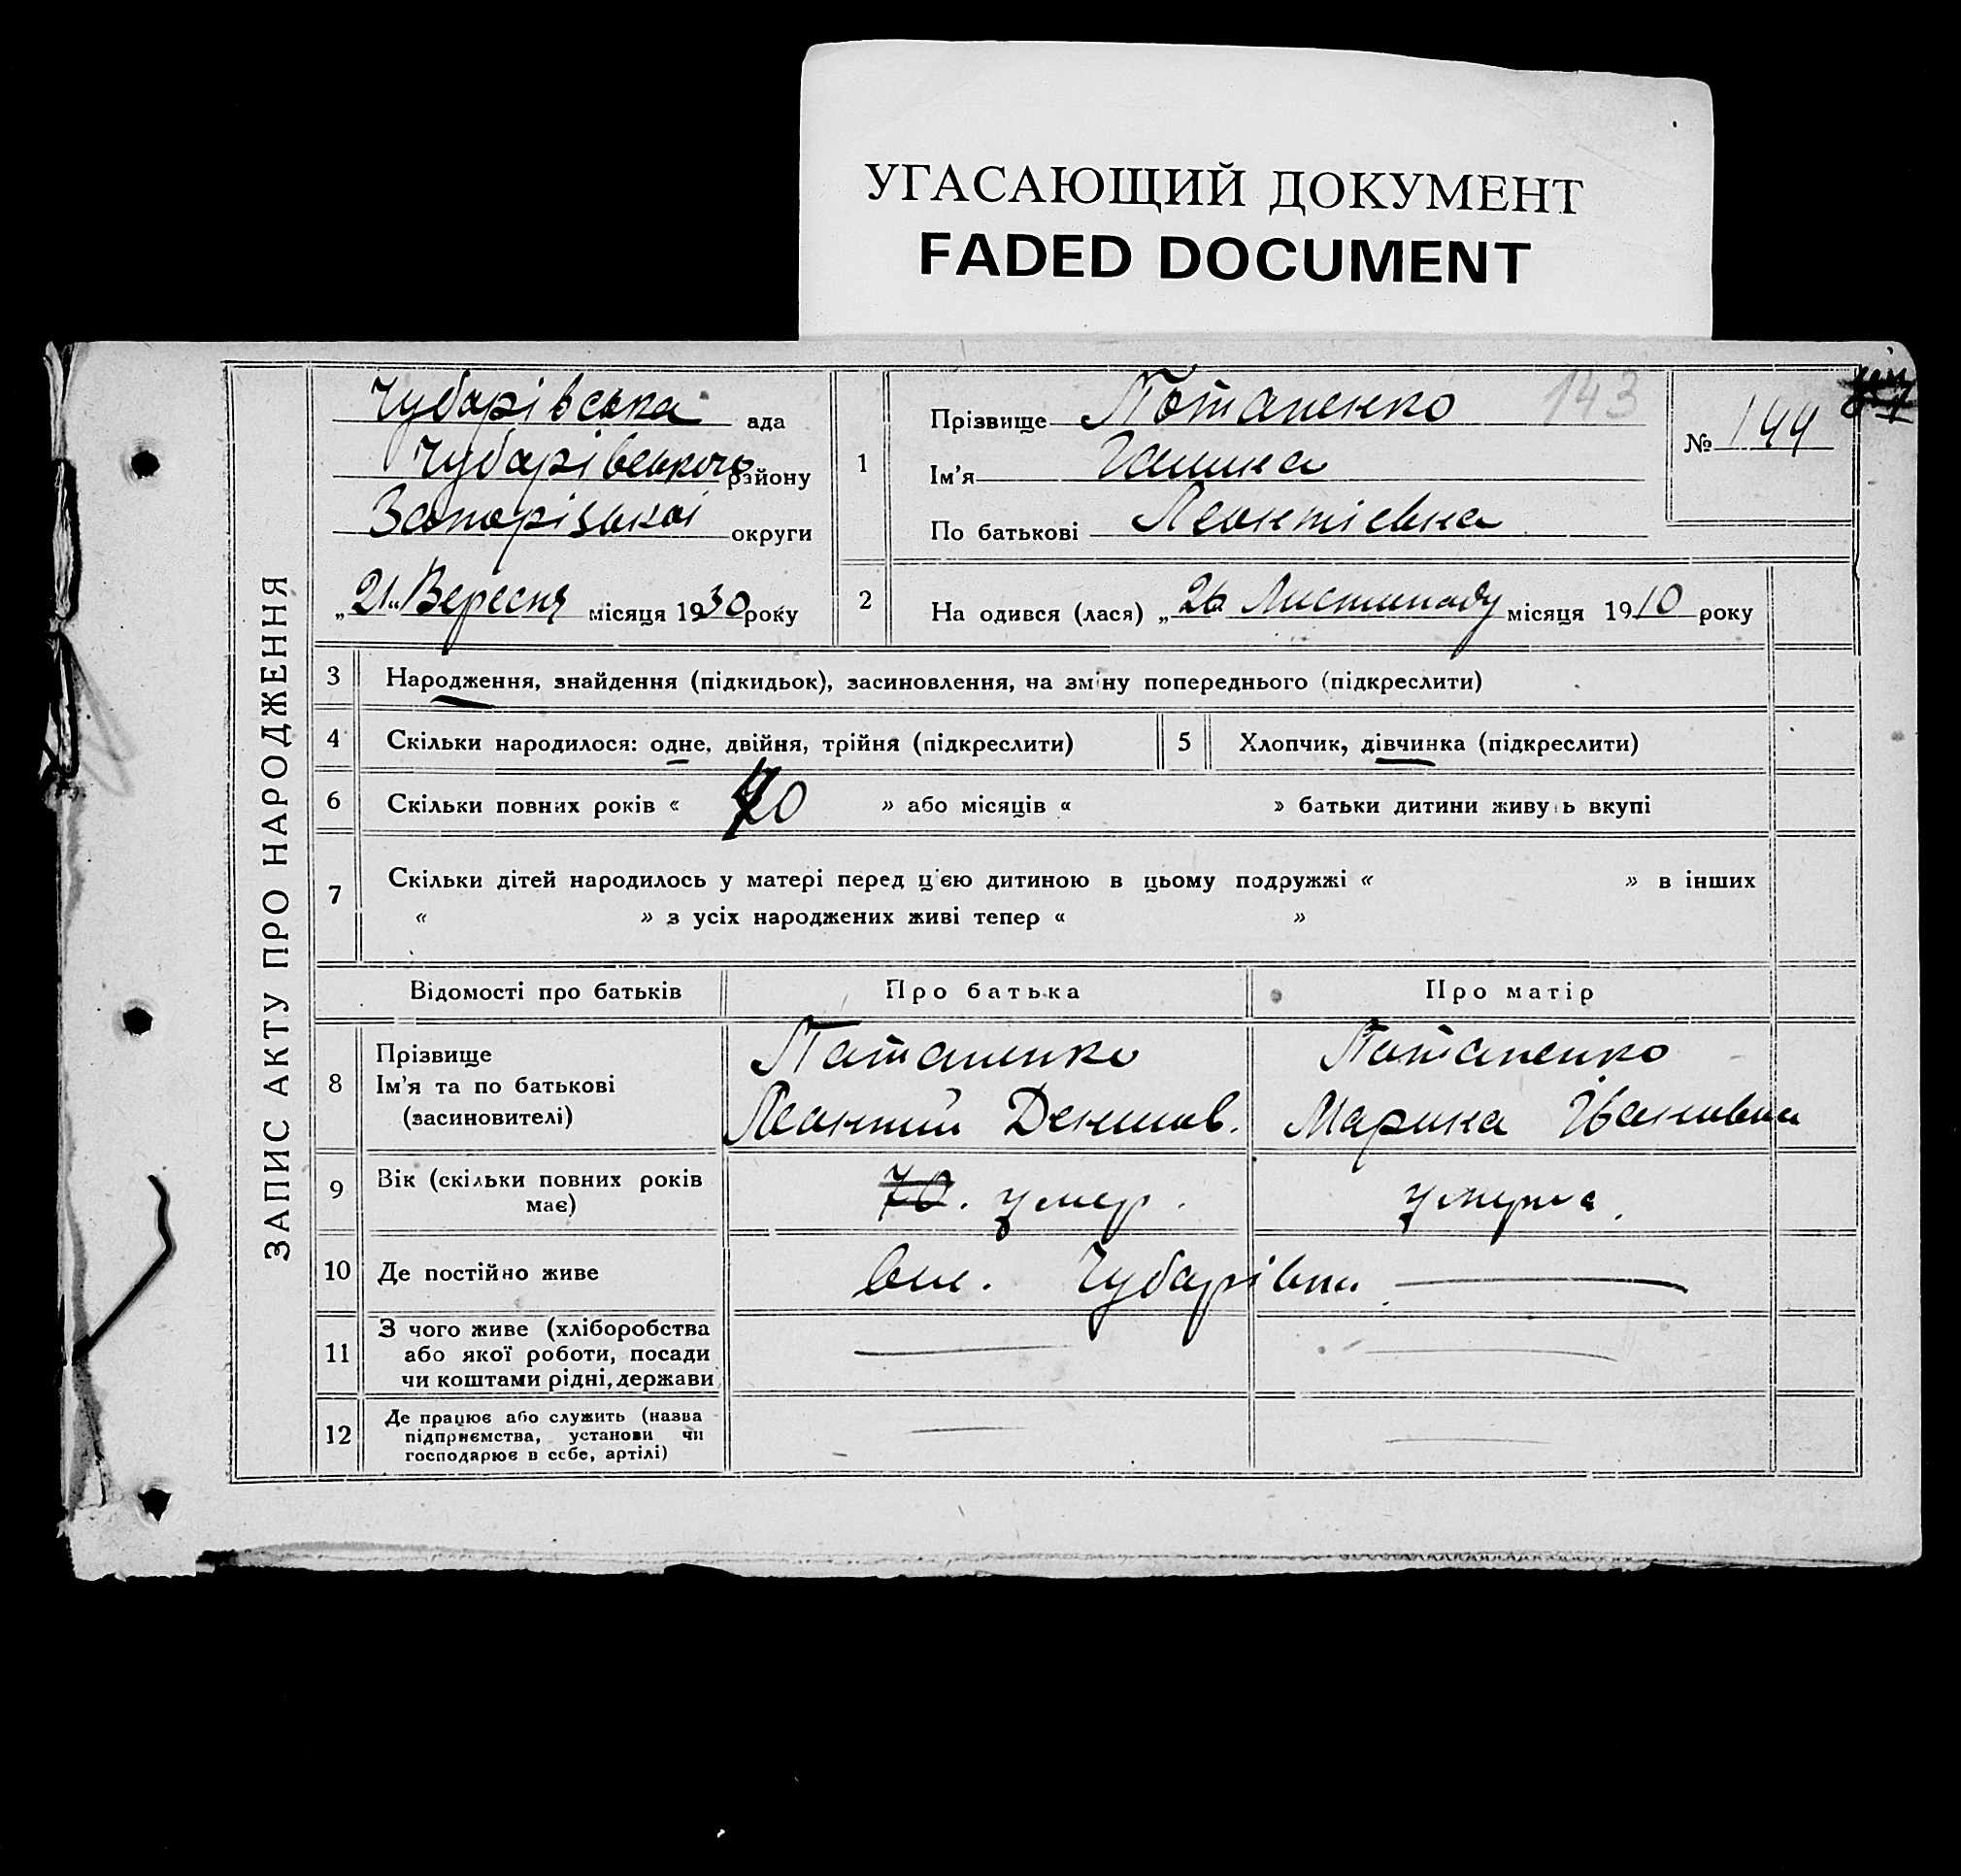 УГАСАЮЩИЙ ДОКУМЕНТ
FADED DOCUMENT
ЗАПИС АКТУ ПРО НАРОДЖЕННЯ
Чубарівська ада
Чубарівського району
Запорізької округи
„21" Вересня місяця 1930 року
1
Прізвище Потапенко
143
Ім'я Галина
По батькові Леонтієвна
№ 144
2
На одився (лася) „26 Листопаду місяця 1910 року
3 Народження, знайдення (підкидьок), засиновлення, на зміну попереднього (підкреслити)
4 Скільки народилося: одне, двійня, трійня (підкреслити)
5 Хлопчик, дівчинка (підкреслити)
6 Скільки повних років « 20 » або місяців « » батьки дитини живу ь вкупі
7 Скільки дітей народилось у матері перед ц'єю дитиною в цьому подружжі « » в інших
« » з усіх народжених живі тепер « »
Відомості про батьків Про батька Про матір
8 Прізвище
Ім'я та по батькові
(засиновителі)
Потапенко
Леонтий Денисов.
Потапенко
Марина Івановна
9 Вік (скільки повних років
має)
70. умер.
умерла.
10 Де постійно живе вел. Чубарівка
11 З чого живе (хліборобства
або якої роботи, посади
чи коштами рідні, держави
12 Де працює або служить (назва
підприємства, установи чи
господарює в себе, артілі)